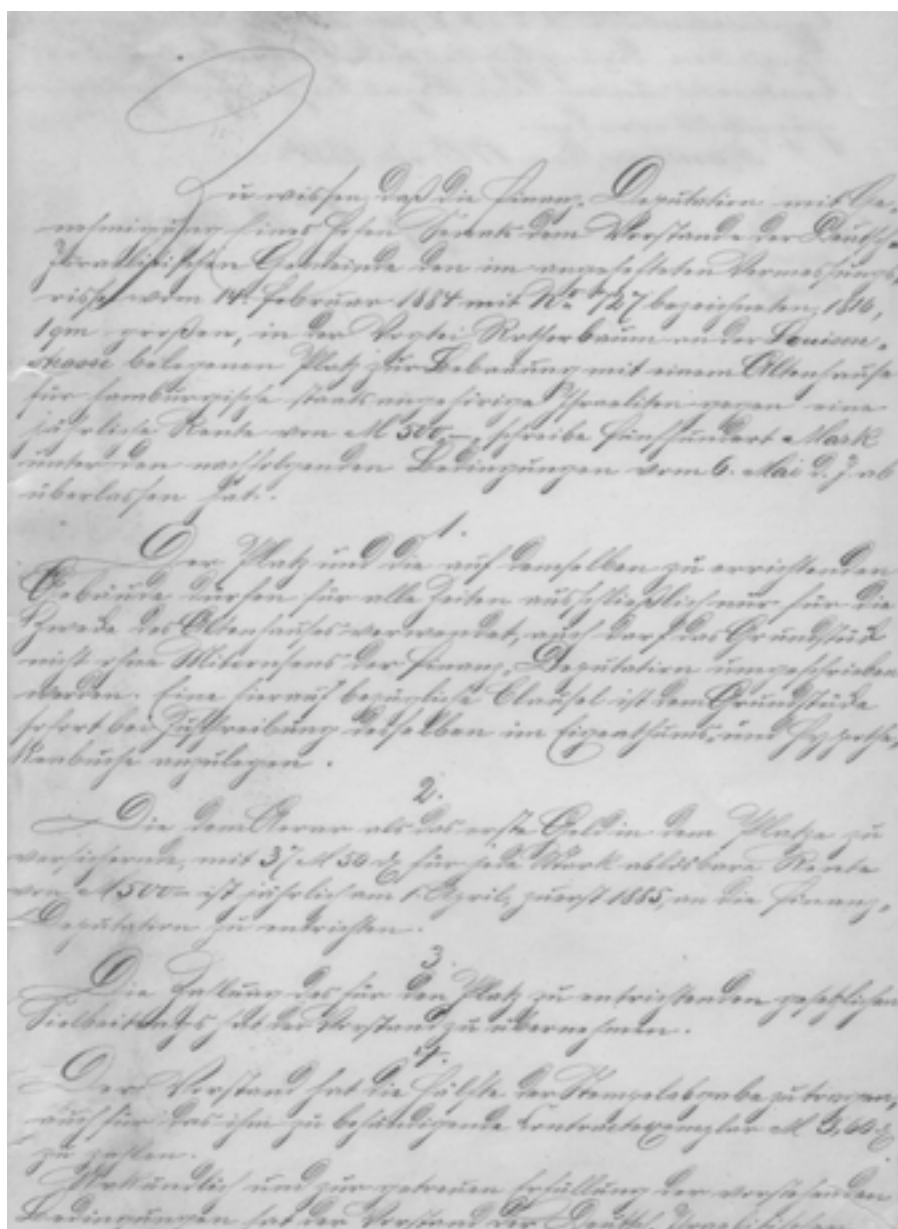 Zu wissen, daß die Finanz-Deputation mit Ge-
nehmigung Eines Hohen Senats dem Vorstande der Deutsch-
Israelitischen Gemeinde den im angehefteten Vermessungs-
risse vom 14. Februar 1884 mit No 727 bezeichneten, 1816,
1qm großen, in der Vogtei Rotherbaum an der Louisen-
strasse belegenen Platz zur Bebauung mit einem Altenhause
für hamburgische staatsangehörige Israeliten gegen eine
jährliche Rente von M 500,-, schreibe fünfhundert Mark
unter den nachfolgenden Bedingungen vom 6. Mai d. J. ab
überlassen hat.
1.
Der Platz und die auf demselben zu errichtenden
Gebäude dürfen für alle Zeiten ausschließlich nur für die
Zwecke des Altenhauses verwendet, auch darf das Grundstück
nicht ohne Mitconsens der Finanz-Deputation umgeschrieben
werden. Eine hierauf bezügliche Clausel ist dem Grundstücke
sofort bei Zuschreibung desselben im Eigenthums- und Hypothe-
kenbuche anzulegen.
2.
Die dem Aerar als das erste Geld in dem Platze zu
versichernde, mit 37 M 50 d für jede Mark ablösbare Rente
von M 500- ist jährlich am 1. April, zuerst 1885, an die Finanz-
Deputation zu entrichten.
3.
Die Zahlung des für den Platz zu entrichtenden gesetzlichen
Sielbeitrags hat der Vorstand zu übernehmen.
4.
Der Vorstand hat die Hälfte der Stempelabgabe zu tragen,
auch für das ihm zu behändigende Contractexemplar M 3,60 d
zu zahlen.
Urkundlich und zur getreuen Erfüllung der vorstehenden
Bedingungen hat der Vorstand der Deutsch-Israelitischen